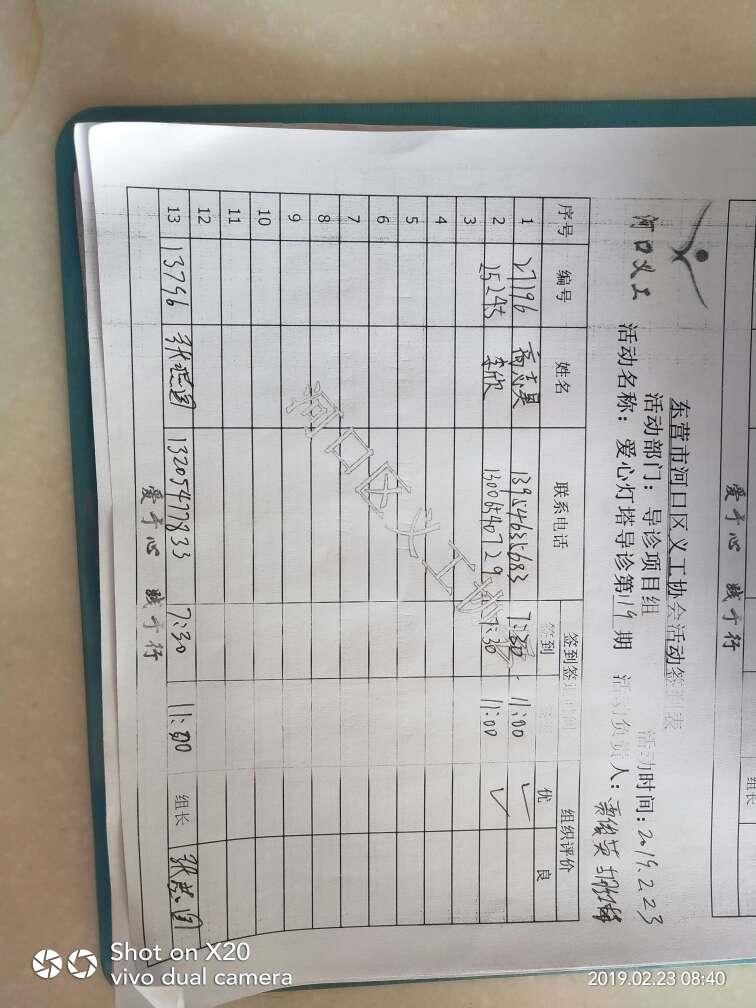 河口义工
东营市河口区义工协会活动签到表
活动部门：导诊项目组 活动时间：2019.2.23
活动名称：爱心灯塔导诊第19期 活动负责人：
序号 编号 姓名 联系电话 签到签退时间 组织评价
签到 优 良
1 27196 高志昊 13954635683 7:30 11:00 ✓
2 25245 李欣 13006540729 7:30 11:00 ✓
3
4
5
6
7
8
9
10
11
12
13 13796 张燕团 13205477833 7:30 11:00 组长
爱于心 践于行
河口区义工协
爱于心 践于行
组长
Shot on X20
vivo dual camera
2019.02.23 08:40